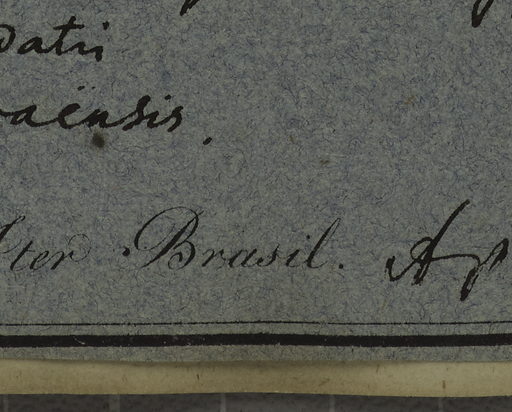 datii
aënsis.
Iter Brasil. Ap